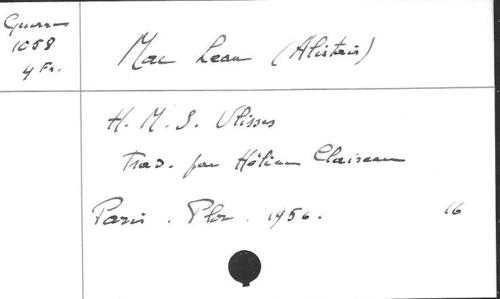 Guerre
1058
4 Fr.
Mac Lean (Alistair)
H. M. S. Ulisses
Trad. par Hélène Claireau
Paris. Plon. 1956. 16